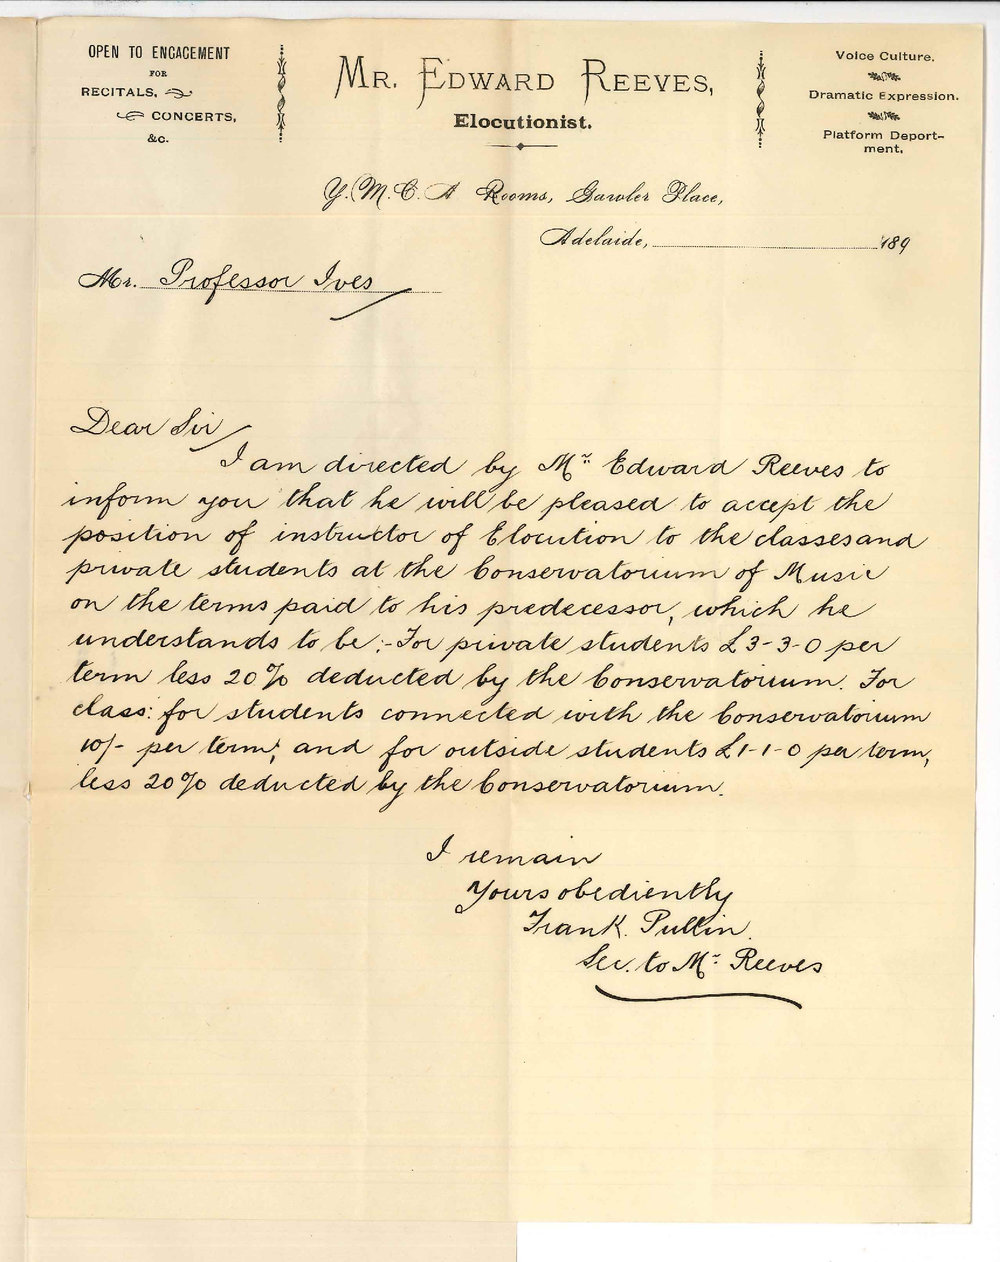 OPEN TO ENGAGEMENT
FOR
RECITALS,
CONCERTS,
&c.
MR. EDWARD REEVES,
Elocutionist.
Voice Culture.
Dramatic Expression.
Platform Deport-
ment.
Y. M. C. A Rooms, Gawler Place,
Adelaide, 189
Mr. Professor Ives
Dear Sir
I am directed by Mr Edward Reeves to
inform you that he will be pleased to accept the
position of instructor of Elocution to the classes and
private students at the Conservatorium of Music
on the terms paid to his predecessor, which he
understands to be:- For private students £3-3-0 per
term less 20% deducted by the Conservatorium. For
class: for students connected with the Conservatorium
10/- per term; and for outside students £1-1-0 per term,
less 20% deducted by the Conservatorium.
I remain
Yours obediently
Frank. Pullin.
Sec. to Mr Reeves